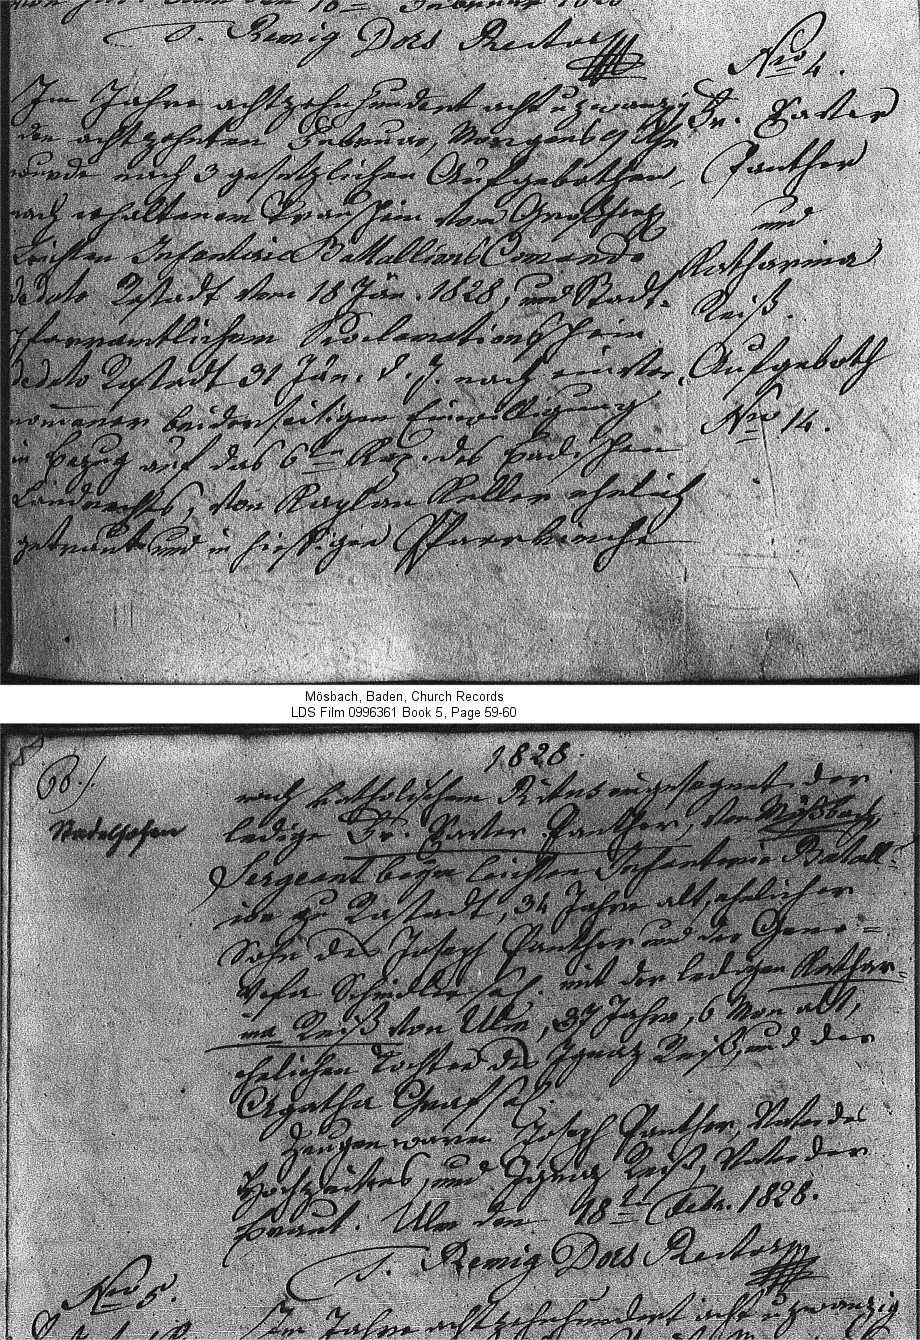 T. Remig Dors Rector
Nro 4.
Im Jahre achtzehnhundert acht u. zwanzig
den achtzehnten Februar, Morgens 9 Uhr
wurde nach 3 gesetzlichen Aufgebothen,
nach erhaltenem Trauschein vom Großherz.
leichten Infanterie Battallions Comando
de dato Rastadt vom 18 Jän. 1828, und Stadt-
pfarramtlichen Proclamationsschein
de dato Rastadt 31 Jän. d. J. nach einver-
nommener beiderseitigen Einwilligung
in Bezug auf das 6te Kap. des badischen
Landrechts, von Kaplan Keller ehelich
getraut und in hiesiger Pfarrkirche
Fr. Xaver
Panther
und
Katharina
Reiß.
Aufgeboth
Nro 14.
Mösbach, Baden, Church Records
LDS Film 0996361 Book 5, Page 59-60
1828.
Stadelhofen
nach katholischem Ritus eingesegnet der
ledige Fr. Xaver Panther, von Mösbach,
Sergeant beym leichten Infanterie Batall-
ion zu Rastadt, 34 Jahre alt, ehelicher
Sohn des Joseph Panther und der Geno-
vefa Schindler sel. mit der ledigen Kathar-
ina Reiß von Ulm, 37 Jahre, 6 Mon alt,
ehelichen Tochter des Ignaz Reiß, und der
Agatha Graf sel.
Zeugen waren Joseph Panther, Vater des
Hochzeiters, und Ignaz Reiß, Vater der
Braut. Ulm den 18te Febr. 1828.
T. Remig Dors Rector
Nro 5.
Im Jahre achtzehnhundert acht u. zwanzig